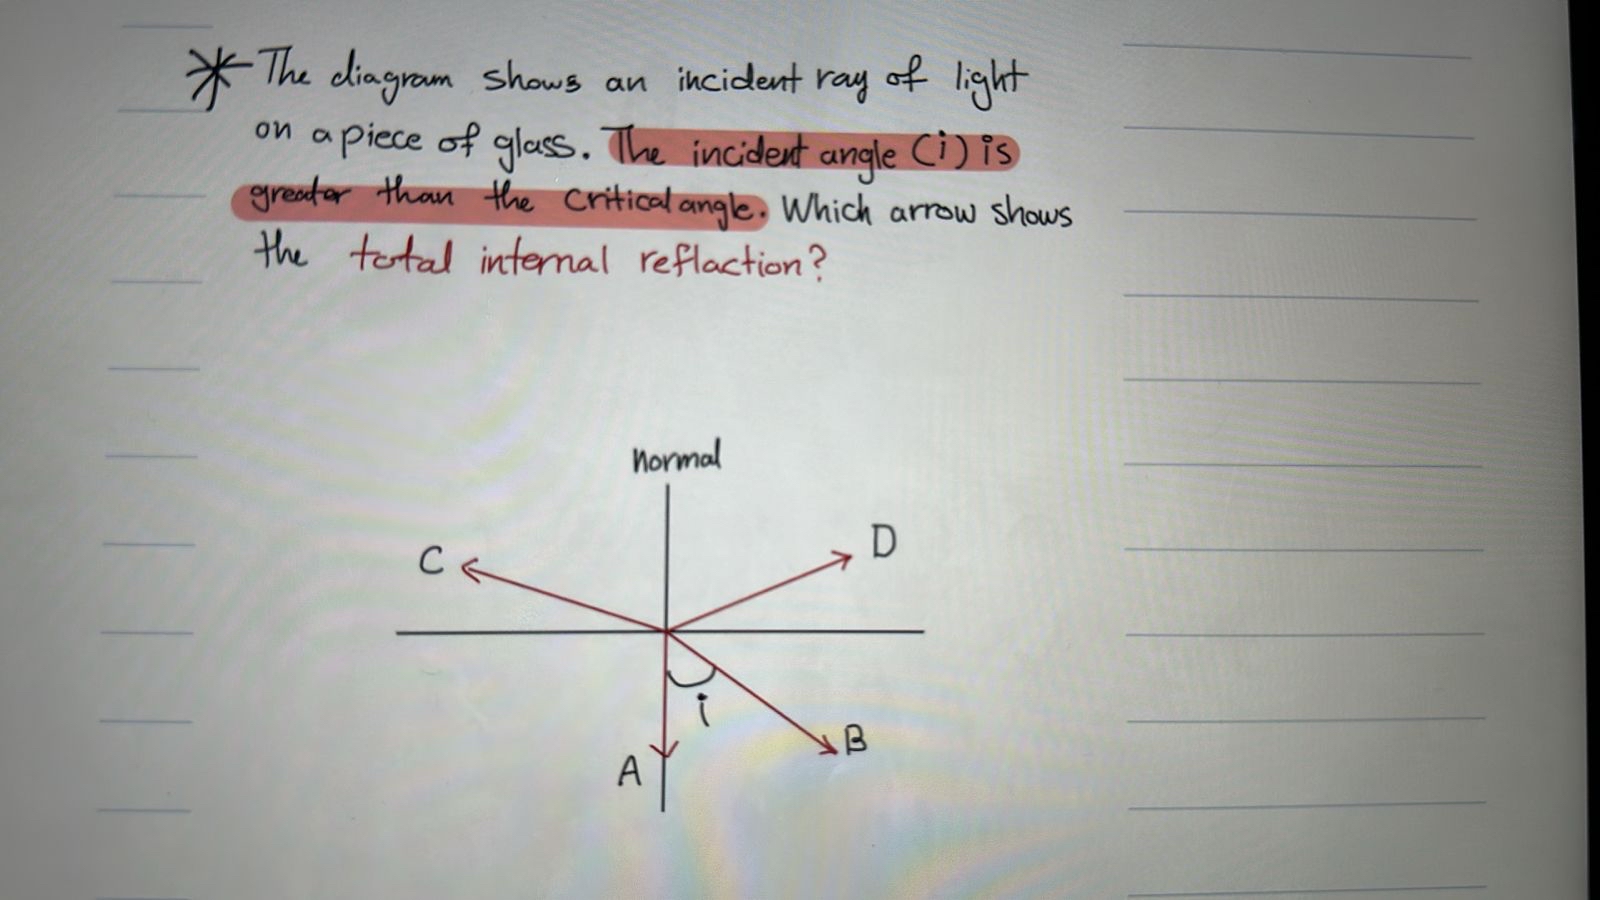 The diagram shows an incident ray of light
on a piece of glass. The incident angle (i) is
greater than the critical angle. Which arrow shows
the total internal reflaction?
normal
C
D
i
A
B